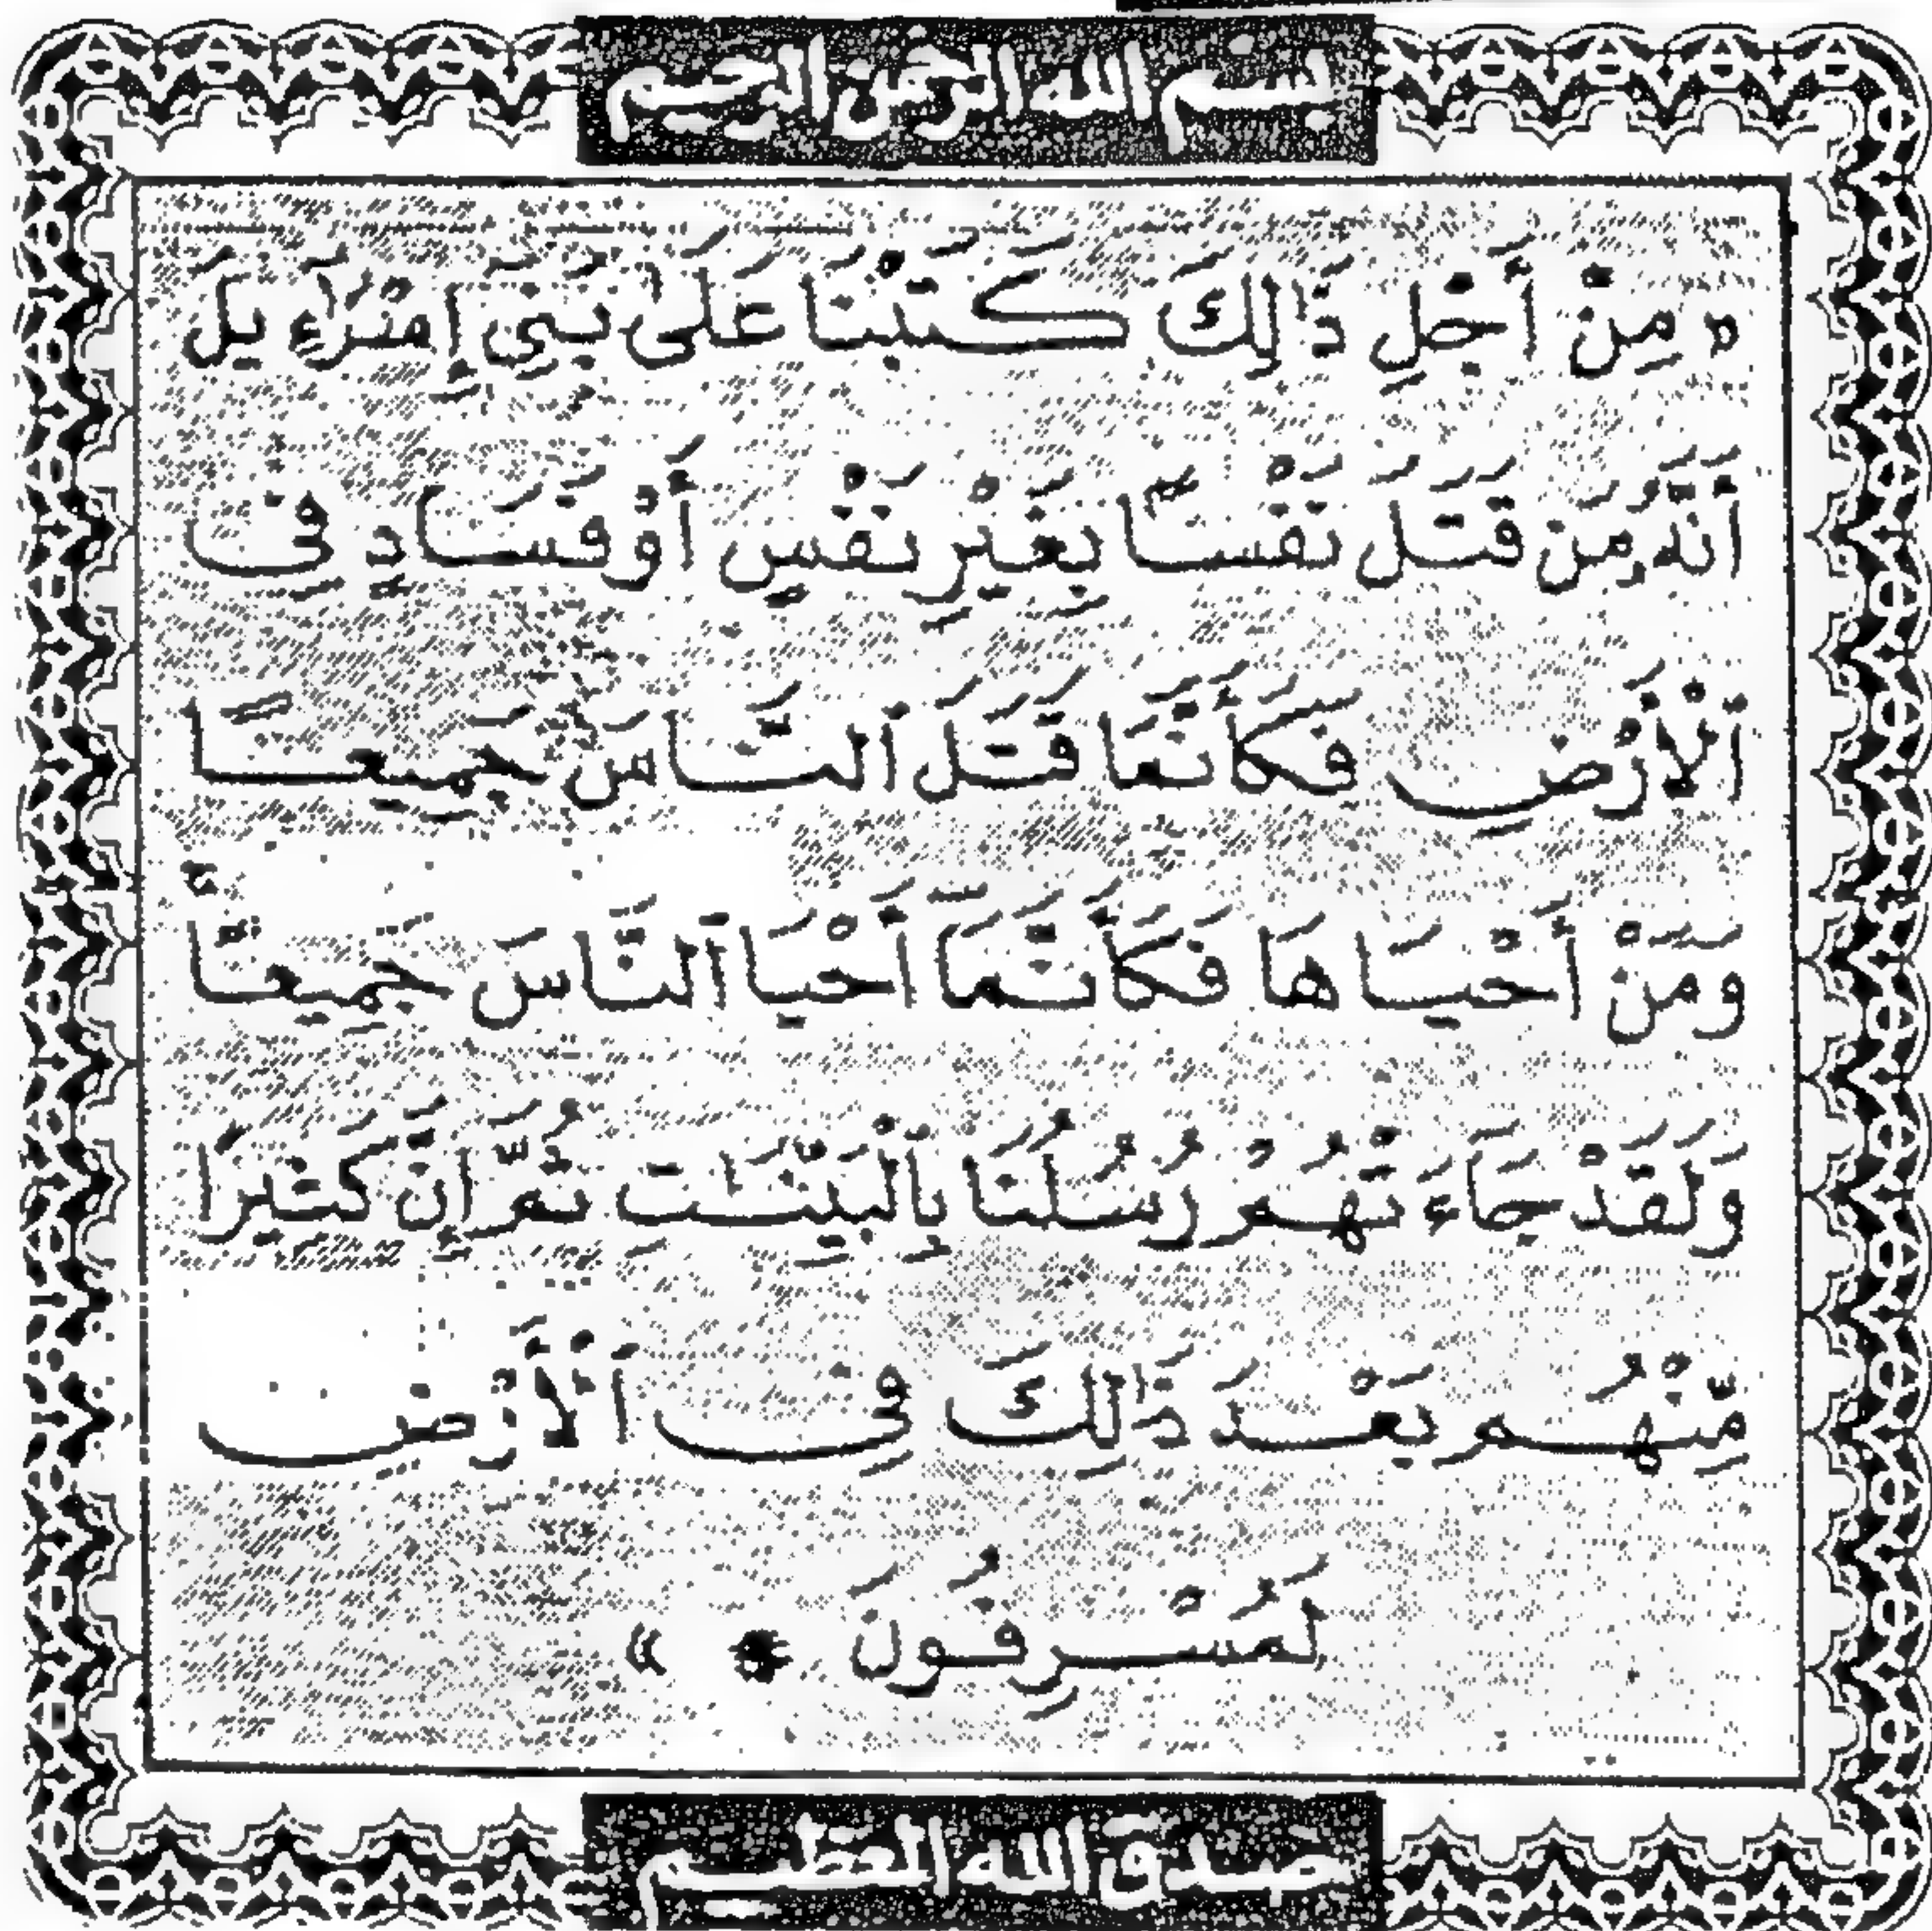 بسم الله الرحمن الرحيم
مِنْ أَجْلِ ذَٰلِكَ كَتَبْنَا عَلَىٰ بَنِي إِسْرَٰٓءِيلَ
أَنَّهُۥ مَن قَتَلَ نَفْسًۢا بِغَيْرِ نَفْسٍ أَوْ فَسَادٍ فِى
ٱلْأَرْضِ فَكَأَنَّمَا قَتَلَ ٱلنَّاسَ جَمِيعًا
وَمَنْ أَحْيَاهَا فَكَأَنَّمَآ أَحْيَا ٱلنَّاسَ جَمِيعًاۚ
وَلَقَدْ جَآءَتْهُمْ رُسُلُنَا بِٱلْبَيِّنَـٰتِ ثُمَّ إِنَّ كَثِيرًا
مِّنْهُم بَعْدَ ذَٰلِكَ فِى ٱلْأَرْضِ
لَمُسْرِفُونَ * »
صدق الله العظيم